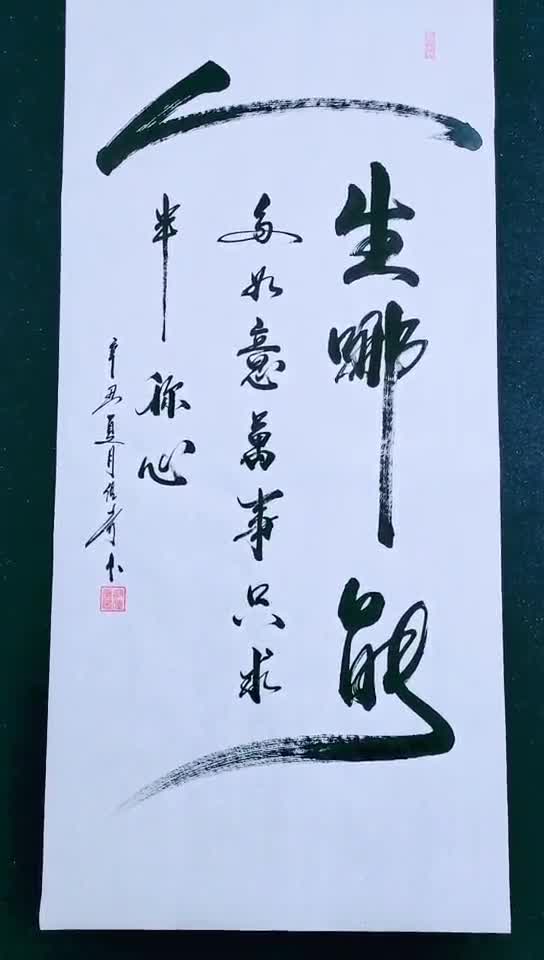 人生哪能
多如意萬事只求
半称心
辛丑夏月